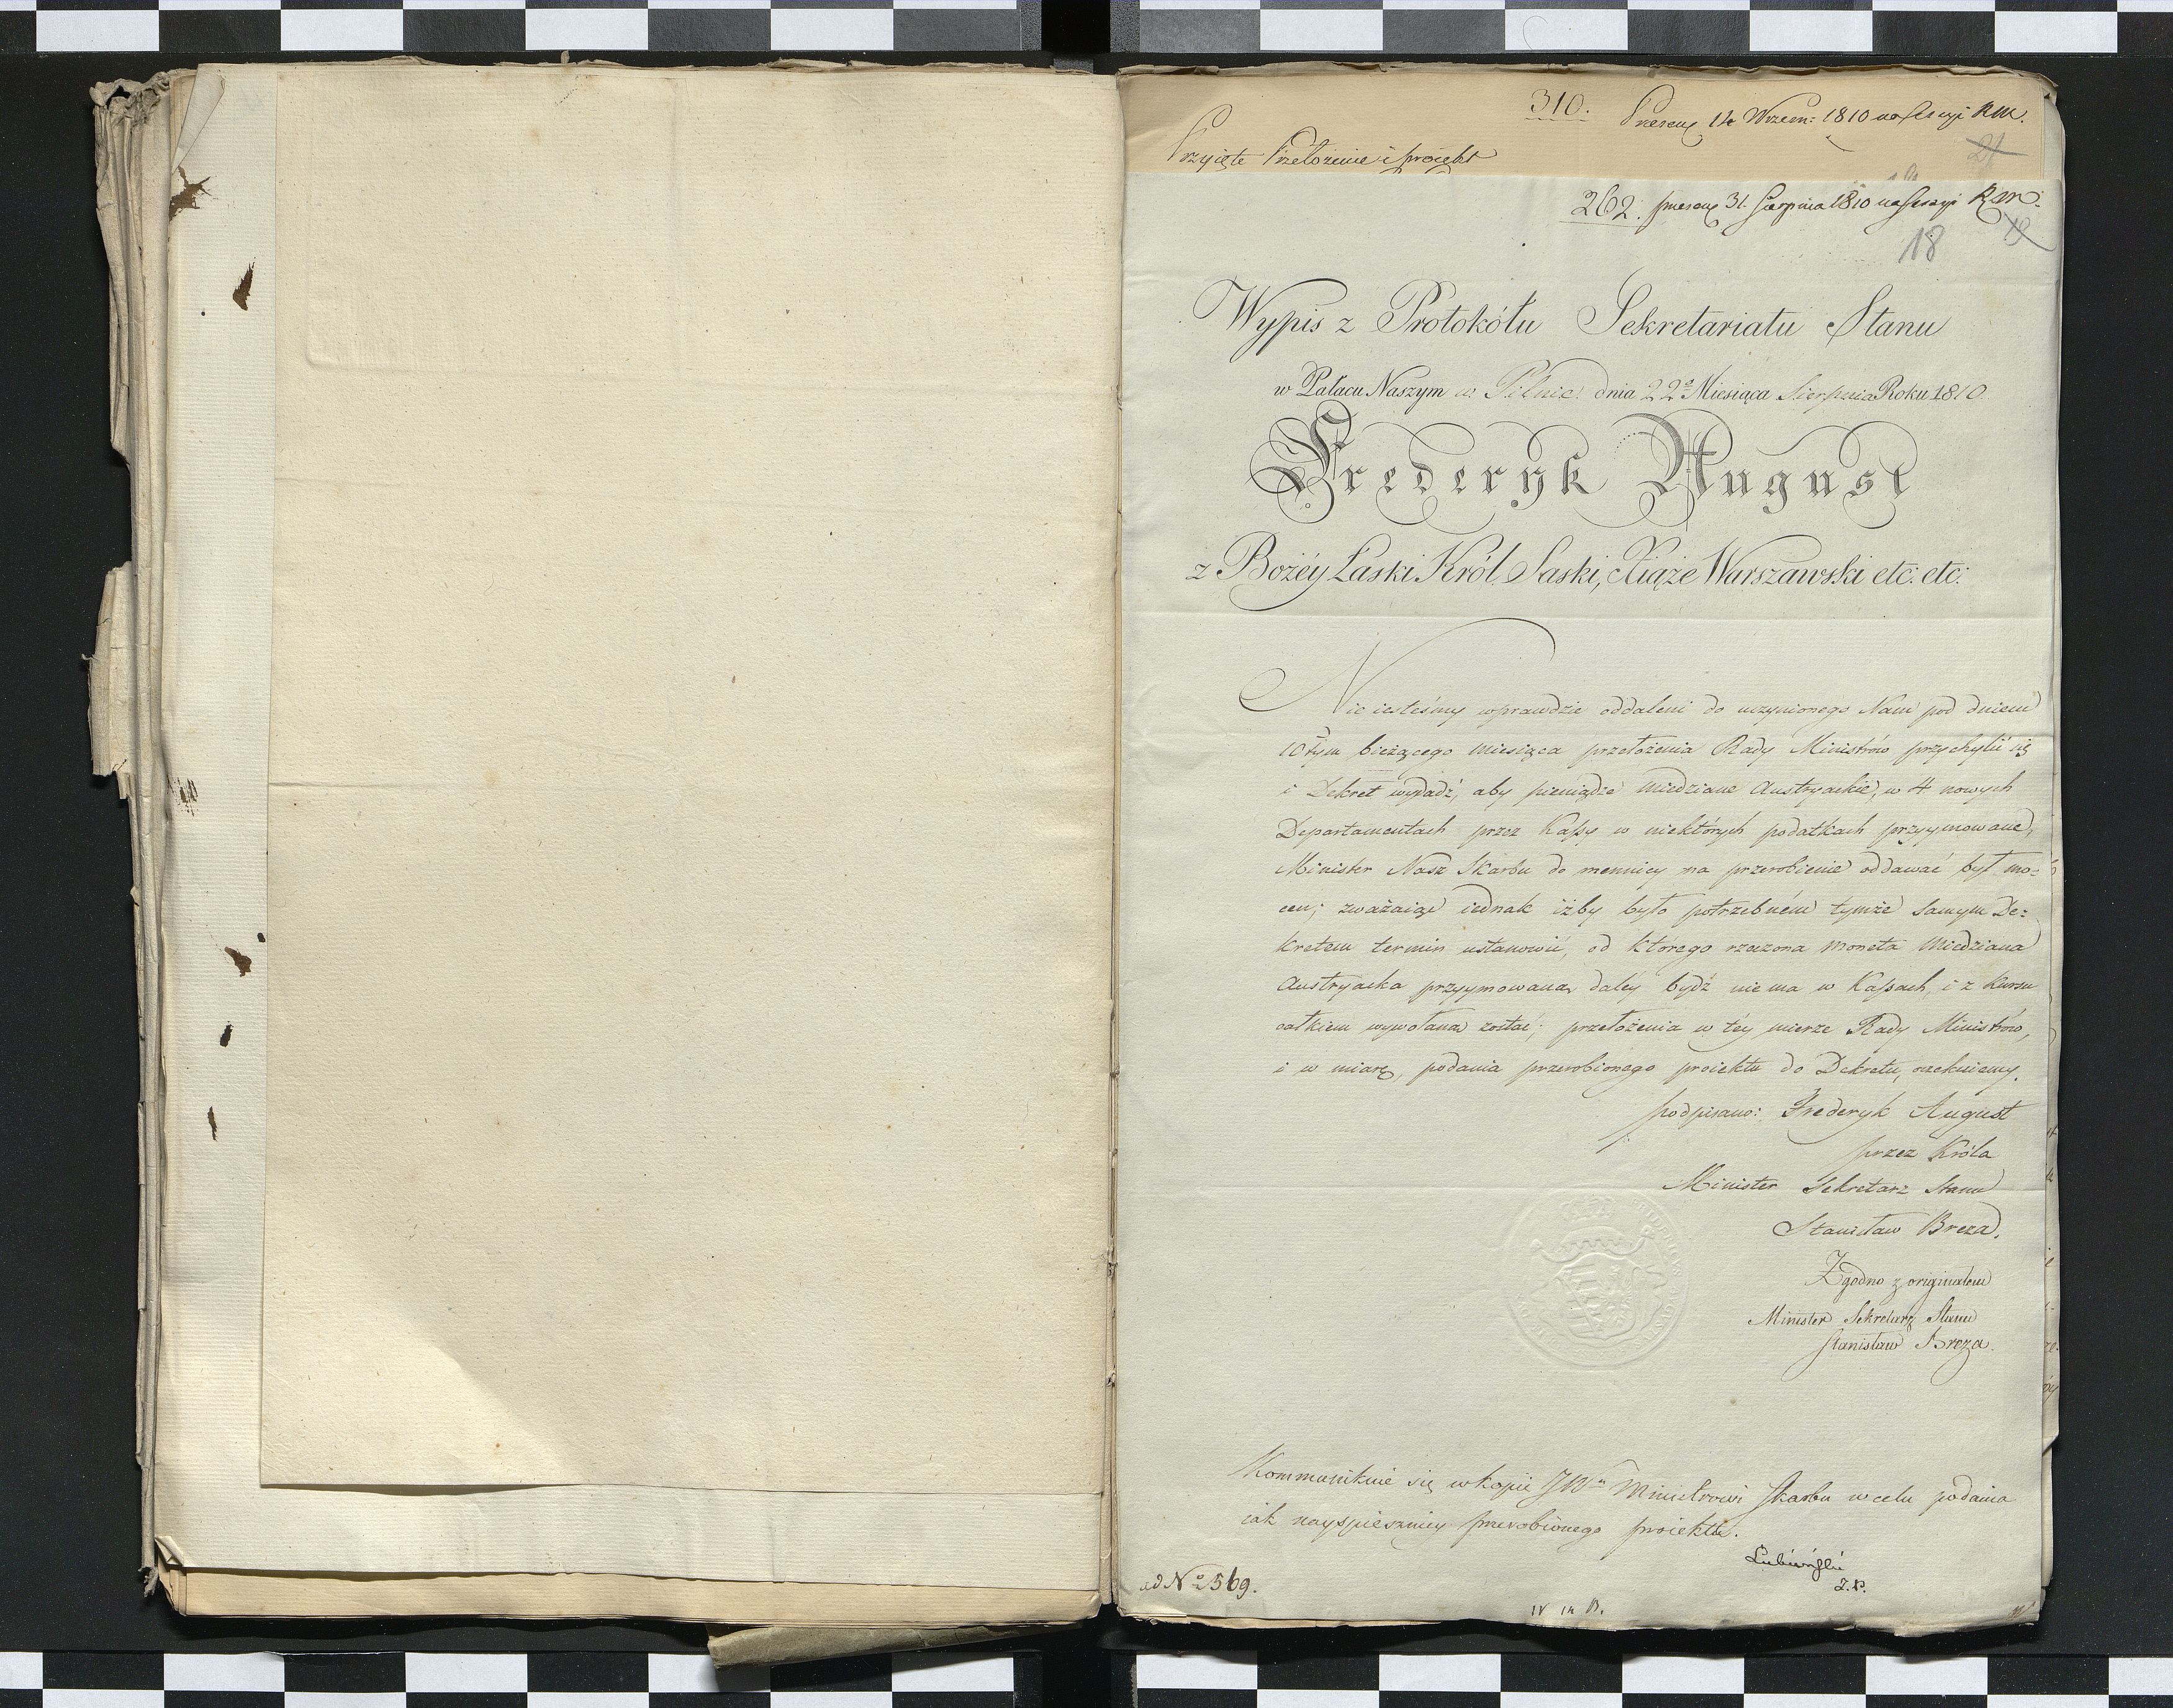 310. Presens 14 Wrzem: 1810 na Sessyi RM.
21
Przyięte Przełożenie i proiekt
262. presens 31. Sierpnia 1810 na Sessyi RM.
18
Wypis z Protokółu Sekretariatu Stanu
w Pałacu Naszym w Pilnic dnia 22º Miesiąca Sierpnia Roku 1810.
Frederyk August
z Bożéy Łaski Król Saski, Xiąże Warszawski etc: etc:
Nie iesteśmy wprawdzie oddaleni do uczynionego Nam pod dniem
10tym bieżącego miesiąca przełożenia Rady Ministrów przychylić się
i Dekret wydadź, aby pieniądze miedziane Austryackie, w 4 nowych
Departamentach przez Kassy w niektórych podatkach przyymowane,
Minister Nasz Skarbu do mennicy na przerobienie oddawać był mo=
cen; zważaiąc iednak iżby było potrzebném tymże samym De=
kretem termin ustanowić, od którego rzeczona moneta miedziana
Austryacka przyymowana daléy bydź nie ma w Kassach, i z kursu
całkiem wywołana zostać; przełożenia w téy mierze Rady Ministrów,
i w miarę, podania przerobionego proiektu do Dekretu, oczekuiemy.
podpisano: Frederyk August
przez Króla
Minister Sekretarz Stanu
Stanisław Breza.
Zgodno z originałem
Minister Sekretarz Stanu
Stanisław Breza.
Kommunikuie się w kopii JWu Ministrowi Skarbu w celu podania
iak nayspieszniey przerobionego proiektu.
Łubieński
ad Nº 569.